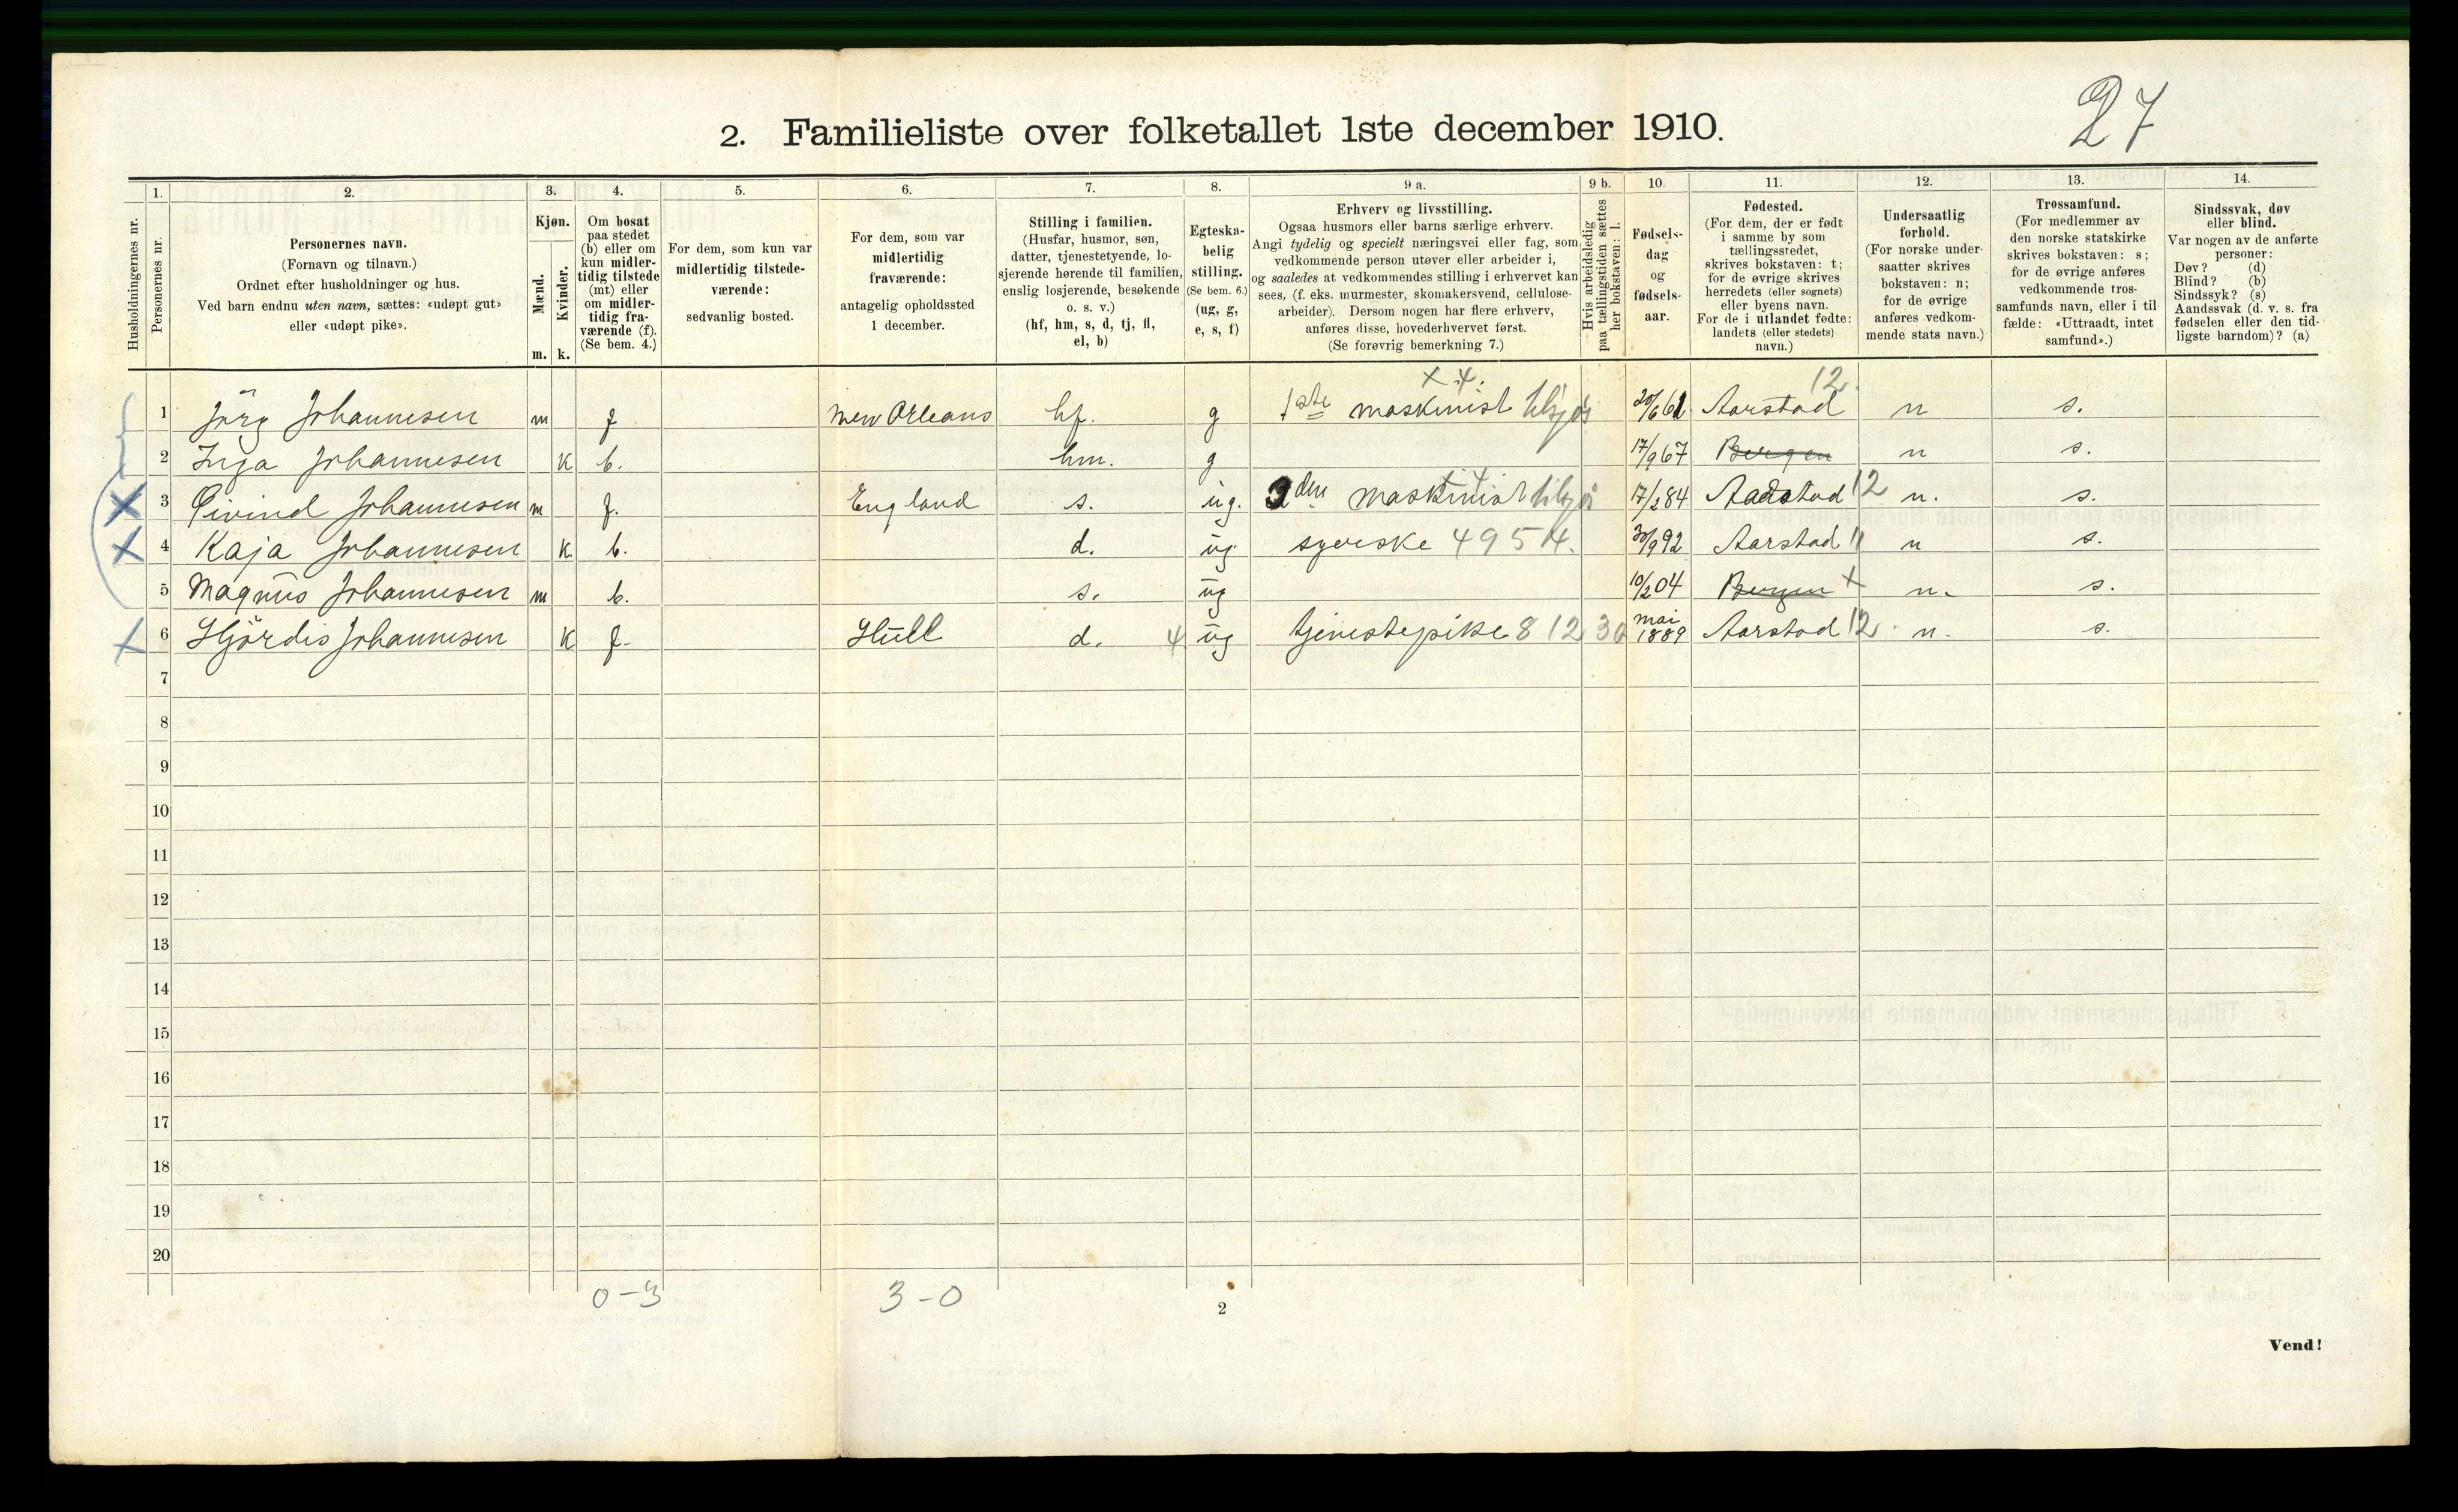 27
2. Familieliste over folketallet 1ste december 1910.
1. 2. 3. 4. 5. 6. 7. 8. 9 a. 9 b. 10. 11. 12. 13. 14.
Husholdningernes nr.
Personernes nr.
Personernes navn.
(Fornavn og tilnavn.)
Ordnet efter husholdninger og hus.
Ved barn endnu uten navn, sættes: «udøpt gut»
eller «udøpt pike».
Kjøn.
Mænd.
Kvinder.
m. k.
Om bosat
paa stedet
(b) eller om
kun midler-
tidig tilstede
(mt) eller
om midler-
tidig fra-
værende (f).
(Se bem. 4.)
For dem, som kun var
midlertidig tilstede-
værende:
sedvanlig bosted.
For dem, som var
midlertidig
fraværende:
antagelig opholdssted
1 december.
Stilling i familien.
(Husfar, husmor, søn,
datter, tjenestetyende, lo-
sjerende hørende til familien,
enslig losjerende, besøkende
o. s. v.)
(hf, hm, s, d, tj, fl,
el, b)
Egteska-
belig
stilling.
(Se bem. 6.)
(ug, g,
e, s, f)
Erhverv og livsstilling.
Ogsaa husmors eller barns særlige erhverv.
Angi tydelig og specielt næringsvei eller fag, som
vedkommende person utøver eller arbeider i,
og saaledes at vedkommendes stilling i erhvervet kan
sees, (f. eks. murmester, skomakersvend, cellulose-
arbeider). Dersom nogen har flere erhverv,
anføres disse, hovederhvervet først.
(Se forøvrig bemerkning 7.)
Hvis arbeidsledig
paa tællingstiden sættes
her bokstaven: l.
Fødsels-
dag
og
fødsels-
aar.
Fødested.
(For dem, der er født
i samme by som
tællingsstedet,
skrives bokstaven: t;
for de øvrige skrives
herredets (eller sognets)
eller byens navn.
For de i utlandet fødte:
landets (eller stedets)
navn.)
Undersaatlig
forhold.
(For norske under-
saatter skrives
bokstaven: n;
for de øvrige
anføres vedkom-
mende stats navn.)
Trossamfund.
(For medlemmer av
den norske statskirke
skrives bokstaven: s;
for de øvrige anføres
vedkommende tros-
samfunds navn, eller i til-
fælde: «Uttraadt, intet
samfund».)
Sindssvak, døv
eller blind.
Var nogen av de anførte
personer:
Døv? (d)
Blind? (b)
Sindssyk? (s)
Aandssvak (d. v. s. fra
fødselen eller den tid-
ligste barndom)? (a)
x 4. 12
1 Jörg Johannesen m f New Orleans hf. g 1ste maskinist tilsjøs 20/6 61 Aarstad n s.
2 Inga Johannesen k b. hm. g 17/9 67 Bergen n s.
3 Øivind Johannesen m f. England s. ug. 2den maskinist tilsjøs 17/2 84 Aarstad 12 n. s.
4 Kaja Johannesen k b. d. ug syerske 4954. 30/9 92 Aarstad 11 n s.
5 Magnus Johannesen m b. s. ug 10/2 04 Bergen x n. s.
6 Hjördis Johannesen k f. Hull d. 4 ug tjenestepike 8 12 30 mai 1889 Aarstad 12. n. s.
7
8
9
10
11
12
13
14
15
16
17
18
19
20
0-3 3-0
2
Vend!